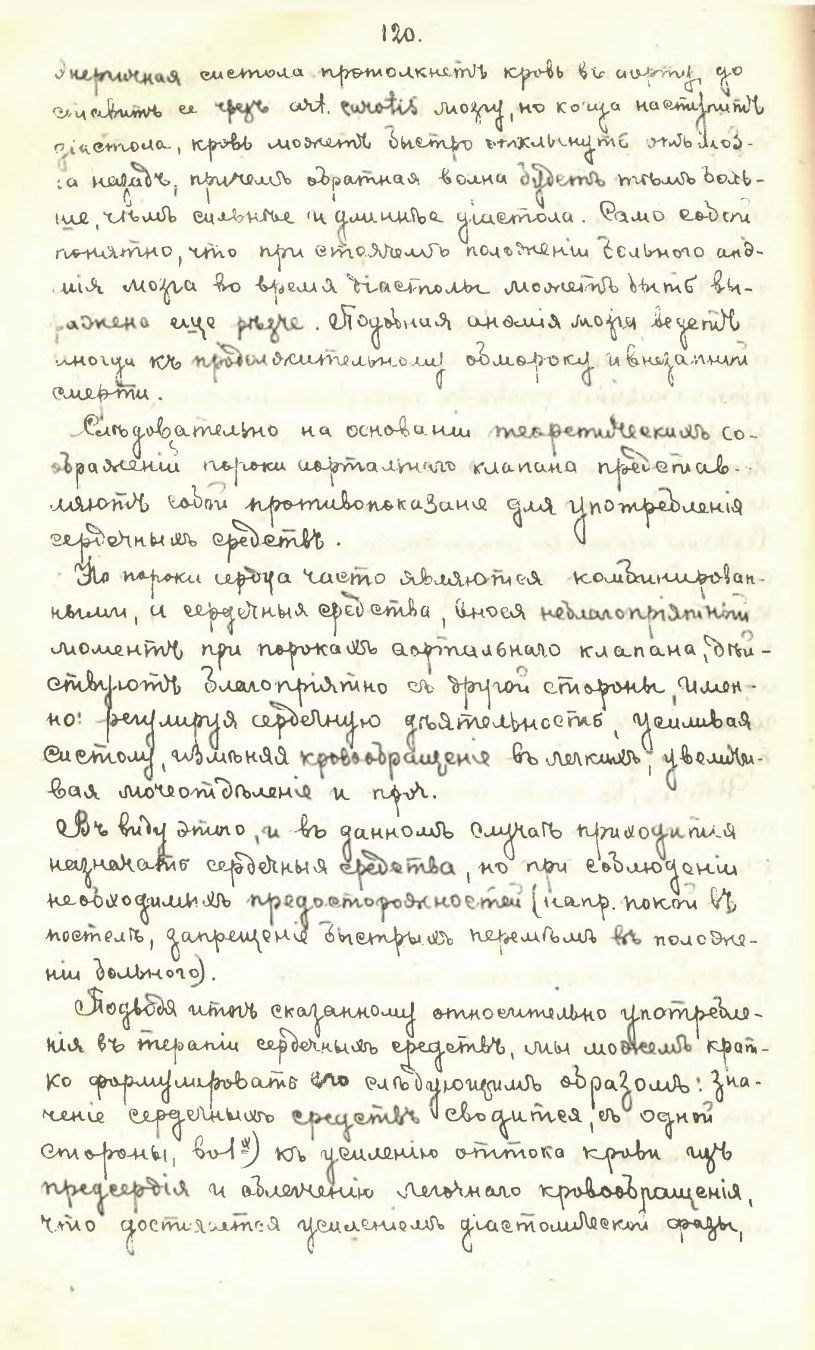 120.
энергичная систола протолкнетъ кровь въ аорту, до
ставитъ ее чрезъ art. carotis мозгу, но когда наступитъ
діастола, кровь можетъ быстро отхлынуть отъ моз-
га назадъ, причемъ обратная волна будетъ тѣмъ боль-
ше, чѣмъ сильнѣе и длиннѣе діастола. Само собой
понятно, что при стоячемъ положеніи больного анэ-
мія мозга во время діастолы можетъ быть вы-
ражена еще рѣзче. Подобная анэмія мозга ведетъ
иногда къ продолжительному обмороку и внезапной
смерти.
Слѣдовательно на основаніи теоретическихъ со-
ображеній пороки аортальнаго клапана представ-
ляютъ собой противопоказаніе для употребленія
сердечныхъ средствъ.
Но пороки сердца часто являются комбинирован-
ными, и сердечныя средства, внося неблагопріятный
моментъ при порокахъ аортальнаго клапана, дѣй-
ствуютъ благопріятно съ другой стороны, имен-
но: регулируя сердечную дѣятельность, усиливая
систолу, измѣняя кровообращеніе въ легкихъ, увеличи-
вая мочеотдѣленіе и проч.
Въ виду этого, и въ данномъ случаѣ приходится
назначать сердечныя средства, но при соблюденіи
необходимыхъ предосторожностей (напр. покой въ
постелѣ, запрещеніе быстрыхъ перемѣнъ въ положе-
ніи больного).
Подводя итогъ сказанному относительно употребле-
нія въ терапіи сердечныхъ средствъ, мы можемъ крат-
ко формулировать его слѣдующимъ образомъ: зна-
ченіе сердечныхъ средствъ сводится, съ одной
стороны, во 1х) къ усиленію оттока крови изъ
предсердія и облегченію легочнаго кровообращенія,
что достигается усиленіемъ діастолической фазы,